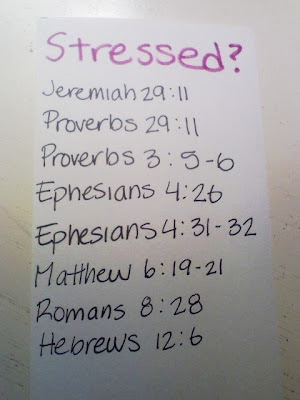 Stressed?
Jeremiah 29:11
Proverbs 29:11
Proverbs 3:5-6
Ephesians 4:26
Ephesians 4:31-32
Matthew 6:19-21
Romans 8:28
Hebrews 12:6